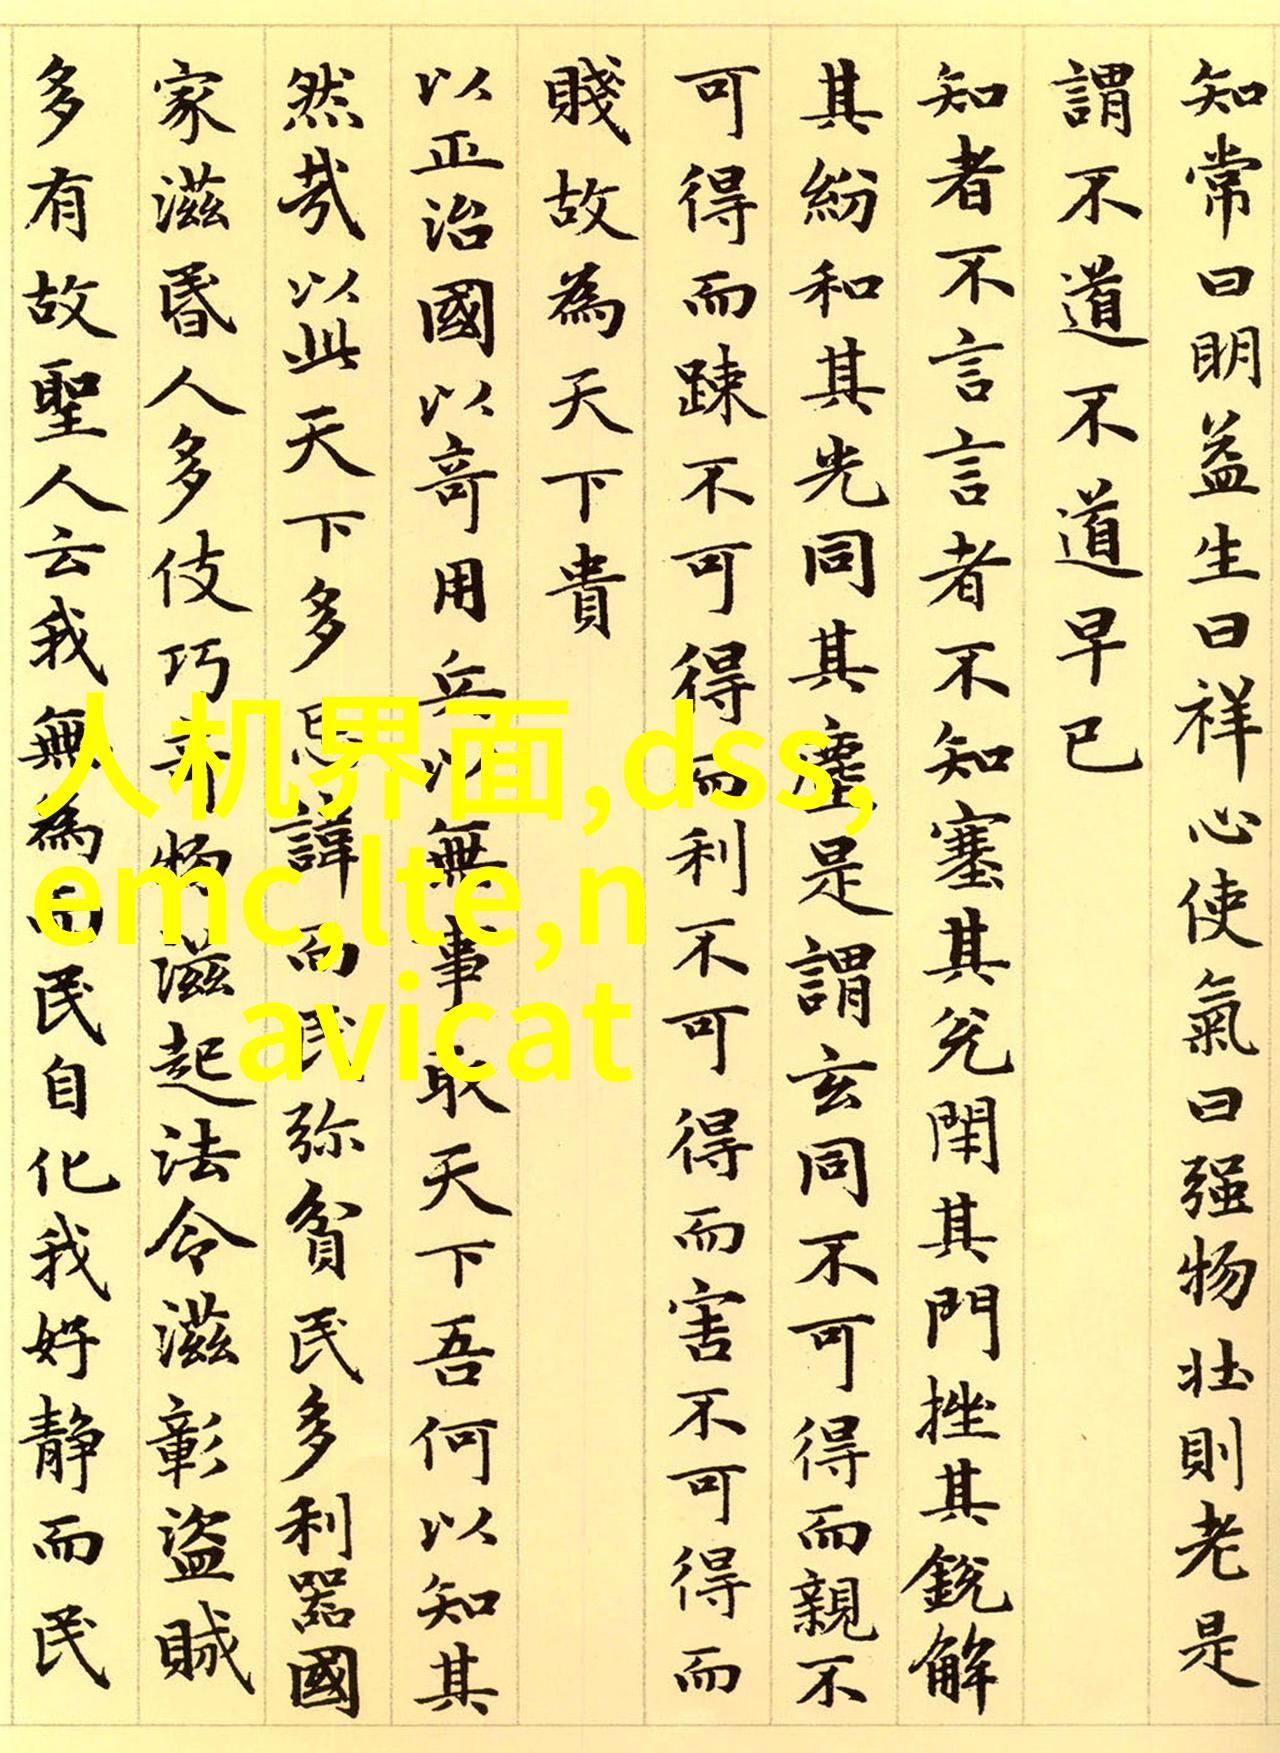 知常曰明益生曰祥心使氣曰强物壮則老是
謂不道不道早已
知者不言言者不知塞其兊閉其門挫其銳解
其紛和其光同其塵是謂玄同不可得而親不
可得而踈不可得而利不可得而害不可得而
賤故為天下貴
以正治國以奇用兵以無事取天下吾何以知其
然哉以此天下多忌諱而民弥貧民多利器國
家滋昬人多伎巧奇物滋起法令滋彰盗賊
多有故聖人云我無為而民自化我好静而民
人机界面,dss,
emc,lte,n
avicat